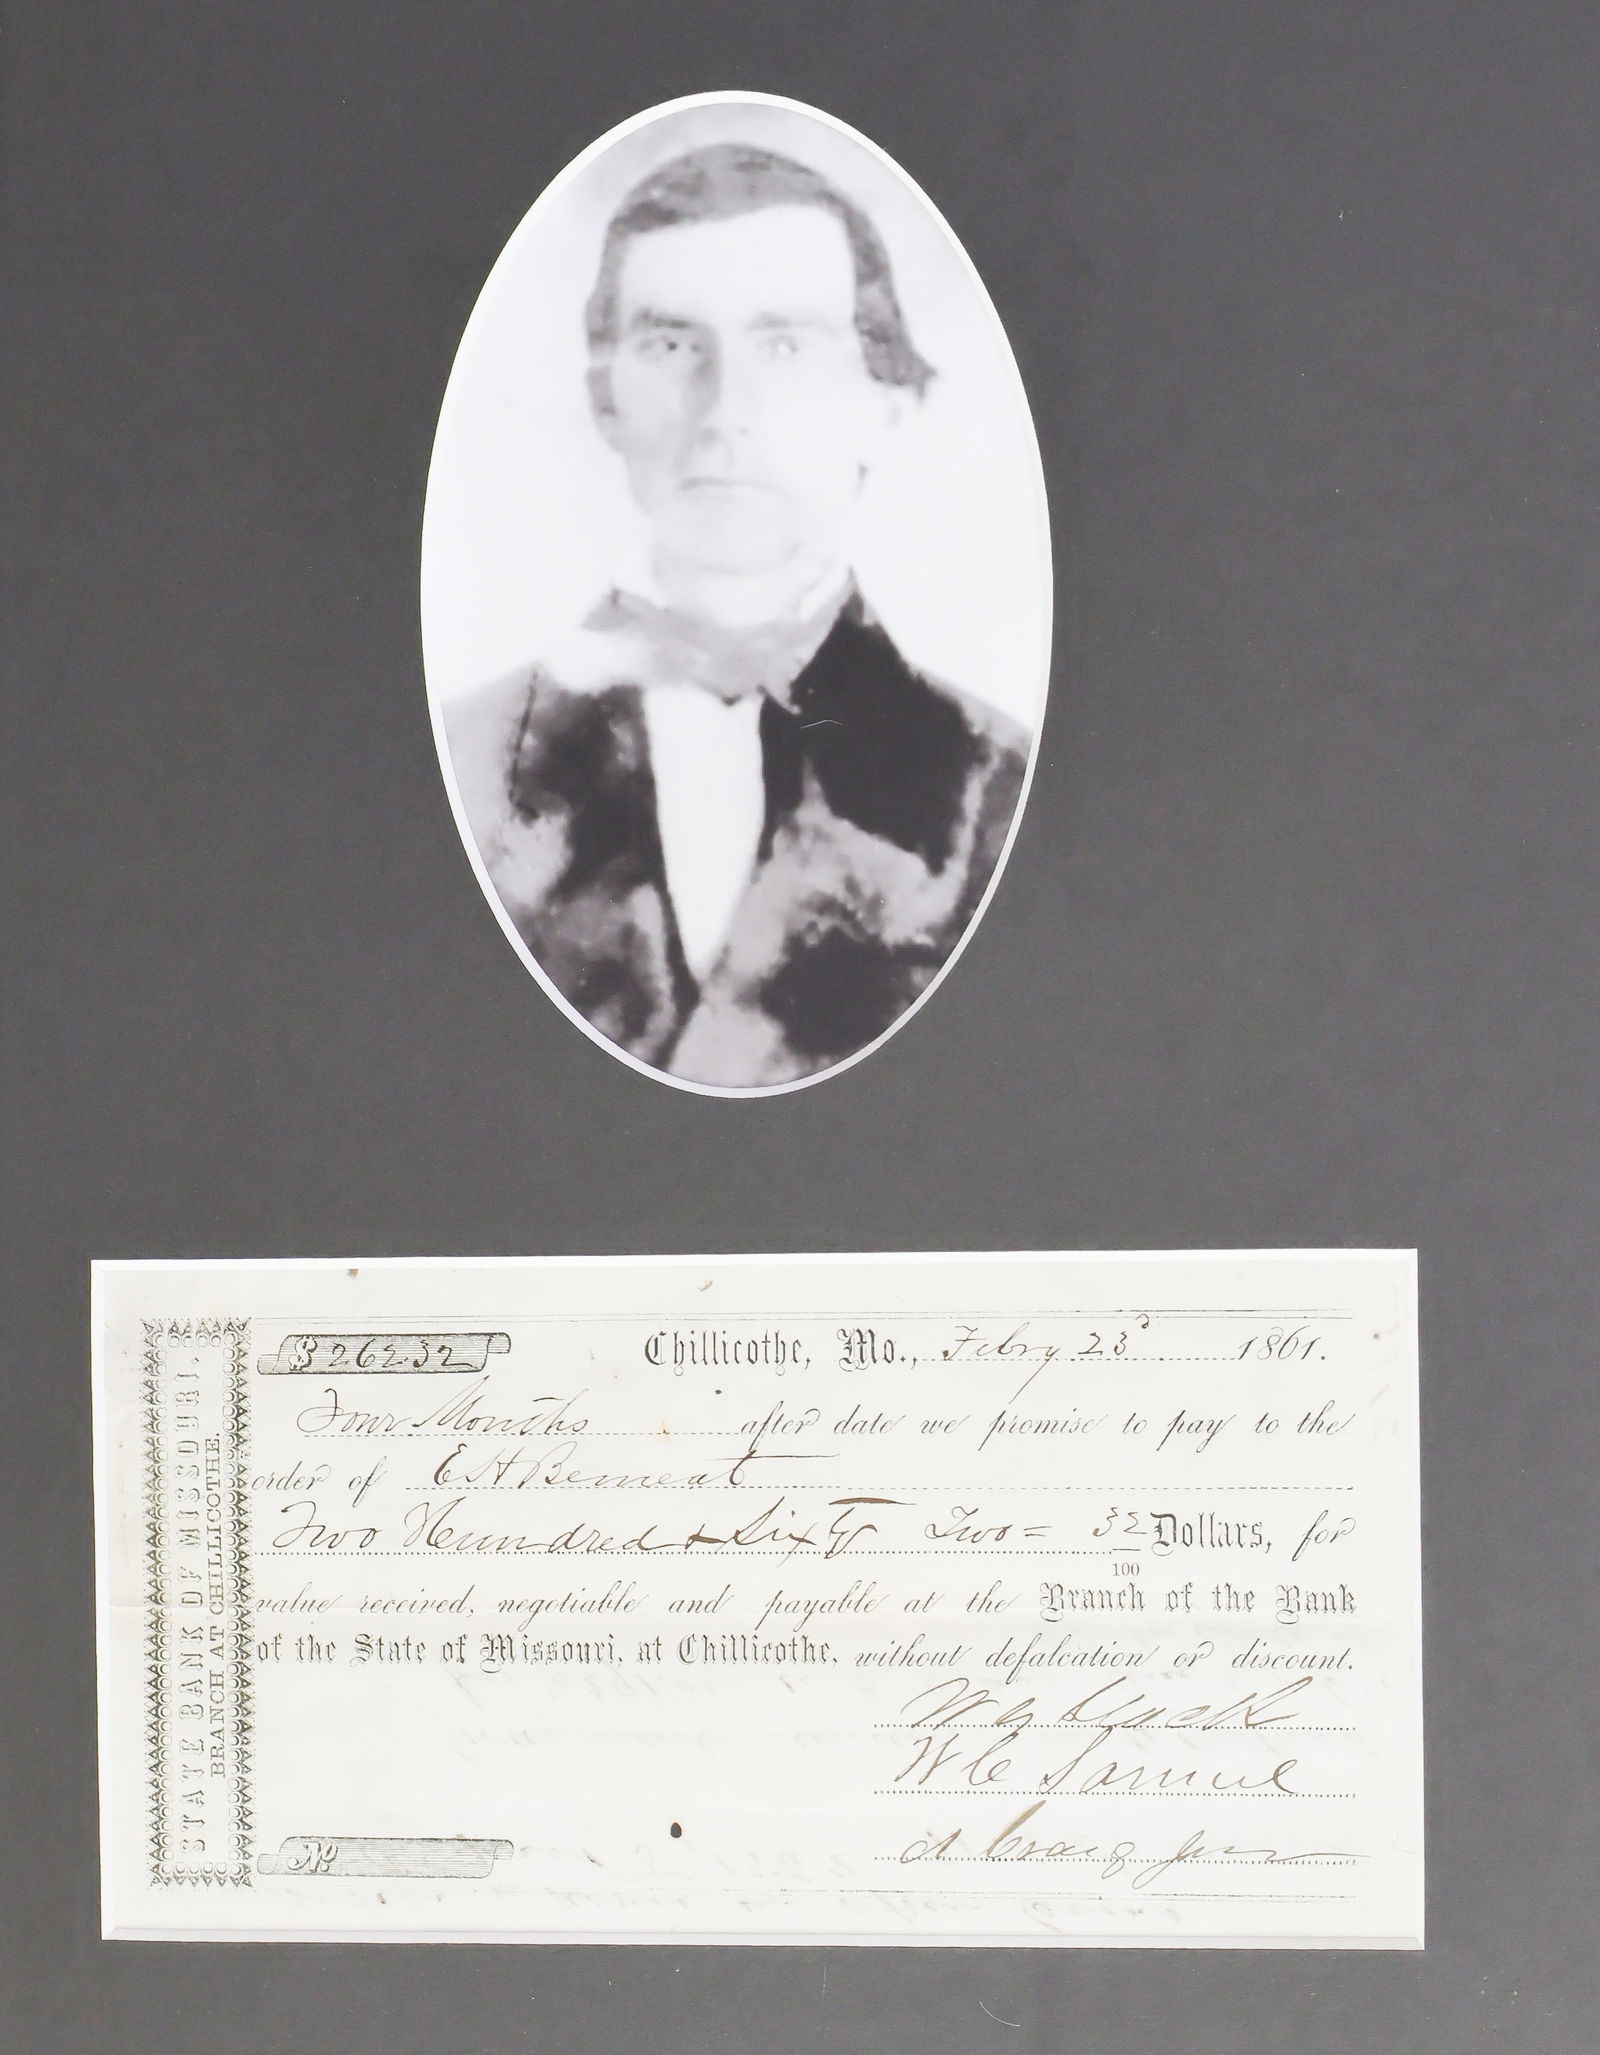 STATE BANK OF MISSOURI.
BRANCH AT CHILLICOTHE.
$ 262.32
Chillicothe, Mo., Febry 23d 1861.
Four Months after date we promise to pay to the
order of E H Bement
Two Hundred & Sixty Two = 32/100 Dollars, for
value received, negotiable and payable at the Branch of the Bank
of the State of Missouri, at Chillicothe, without defalcation or discount.
W Y Slack
W C Samuel
A Craig Junr
No